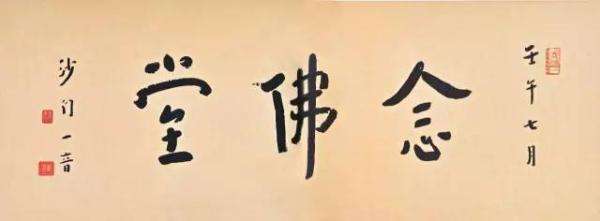 壬午七月
念佛堂
沙门一音